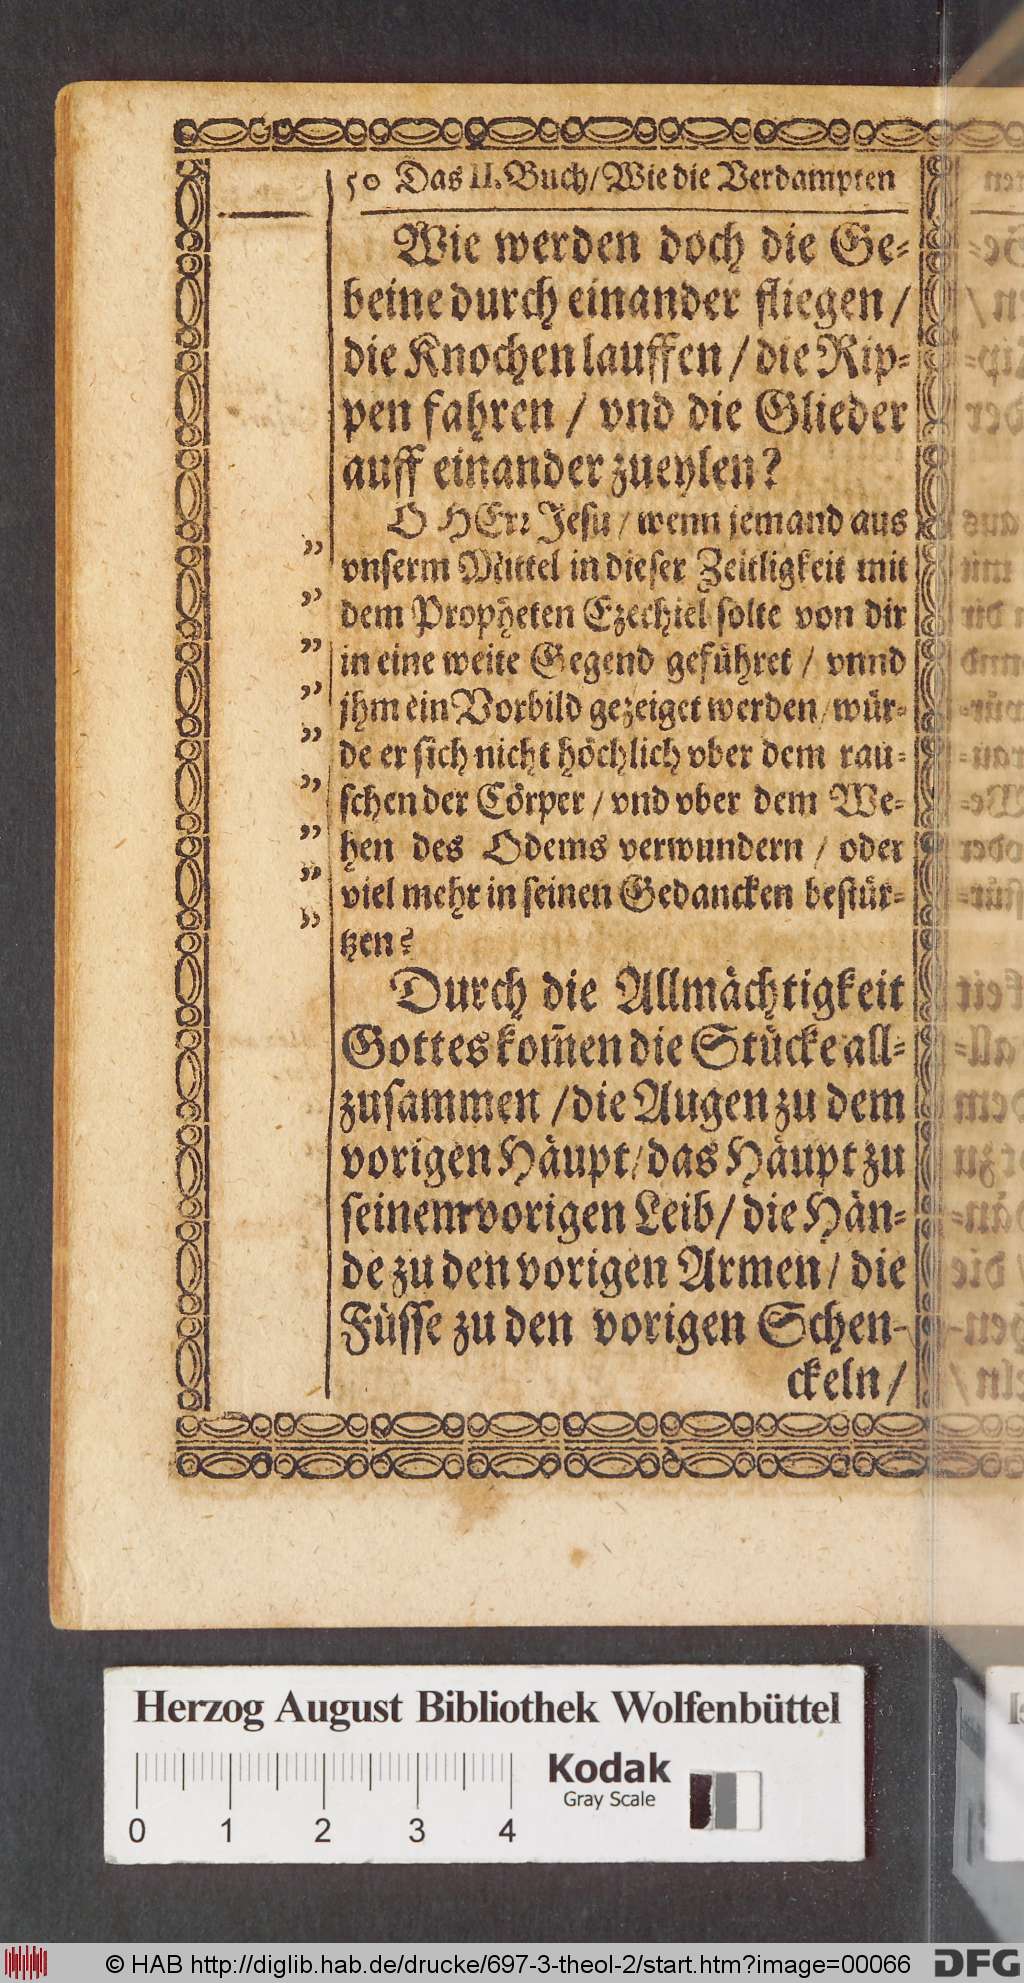 50 Das II. Buch/ Wie die Verdampten
Wie werden doch die Ge-
beine durch einander fliegen /
die Knochen lauffen / die Rip-
pen fahren / vnd die Glieder
auff einander zueylen?
O HErr Jesu / wenn jemand aus
vnserm Mittel in dieser Zeitligkeit mit
dem Propheten Ezechiel solte von dir
in eine weite Gegend geführet / vnnd
jhm ein Vorbild gezeiget werden / wür-
de er sich nicht höchlich vber dem rau-
schen der Cörper / vnd vber dem We-
hen des Odems verwundern / oder
viel mehr in seinen Gedancken bestür-
tzen?
Durch die Allmächtigkeit
Gottes kom̃en die Stücke all-
zusammen / die Augen zu dem
vorigen Häupt / das Häupt zu
seinem vorigen Leib / die Hän-
de zu den vorigen Armen / die
Füsse zu den vorigen Schen-
ckeln /
Herzog August Bibliothek Wolfenbüttel
Kodak
Gray Scale
0 1 2 3 4
© HAB http://diglib.hab.de/drucke/697-3-theol-2/start.htm?image=00066
DFG